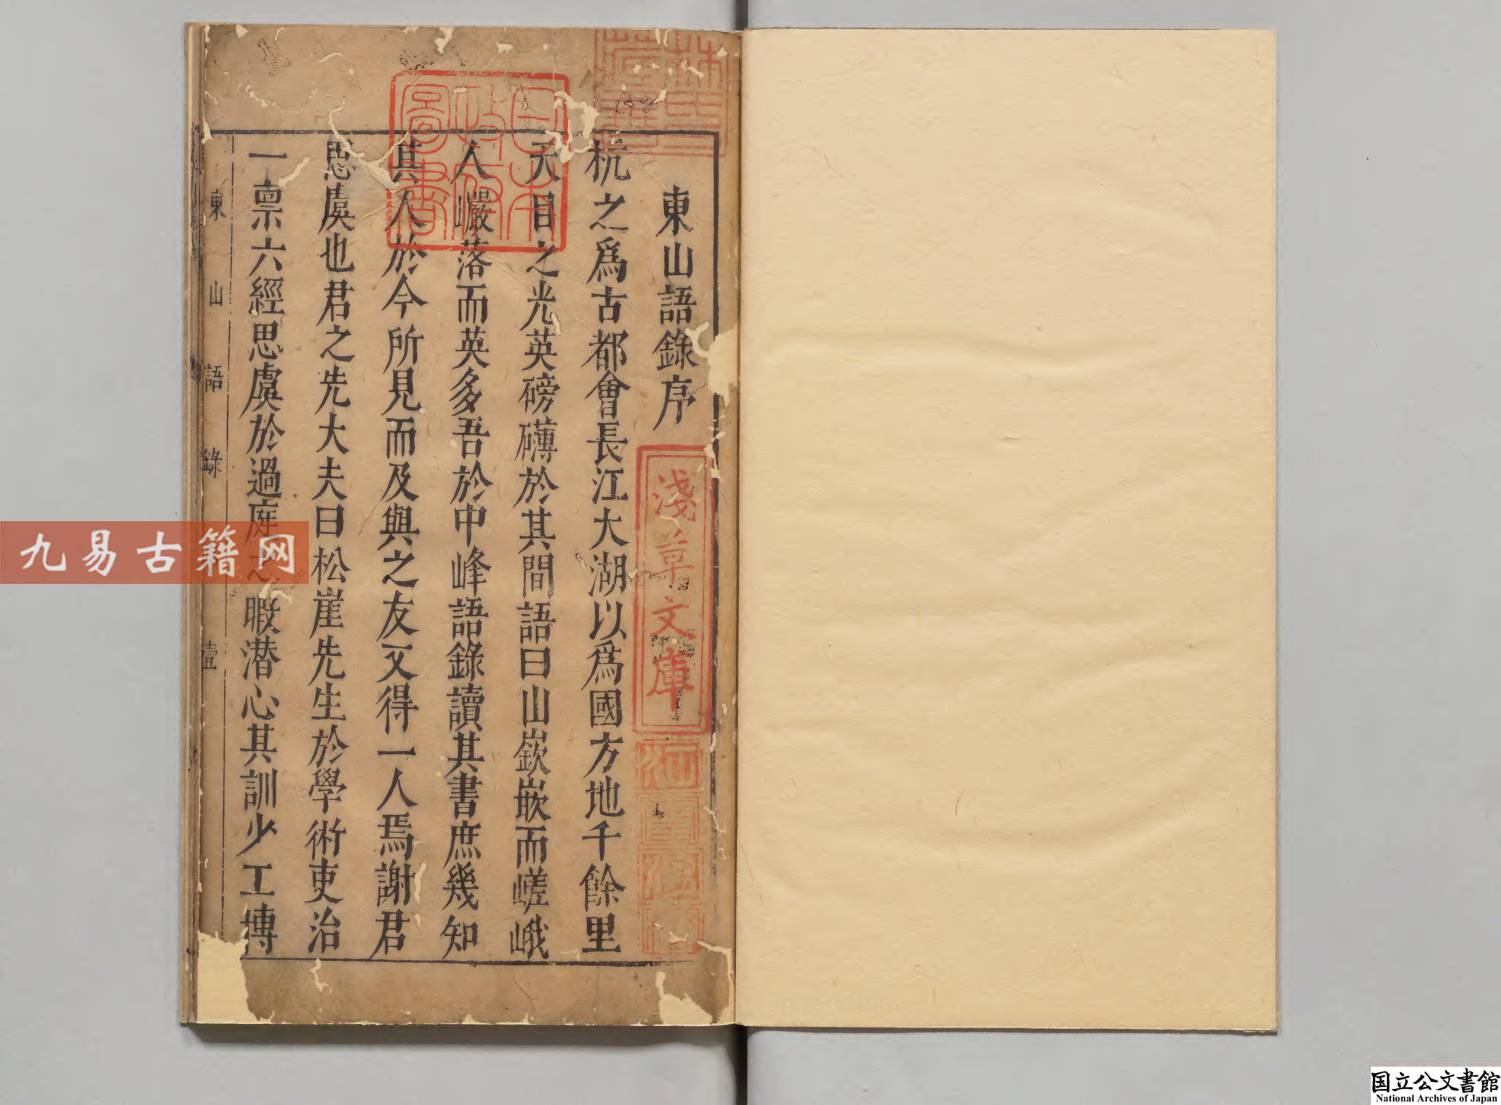 東山語錄序
杭之爲古都會長江大湖以爲國方地千餘里
天目之光英磅礴於其間語曰山嶔嵌而嵯峨
人巖落而英多吾於中峰語錄讀其書庶幾知
其人於今所見而及與之友又得一人焉謝君
思虞也君之先大夫曰松崖先生於學術吏治
一禀六經思虞於過庭之暇潜心其訓少工博
東山語錄
壹
日本政府圖書
淺草文庫
九易古籍网
国立公文書館
National Archives of Japan